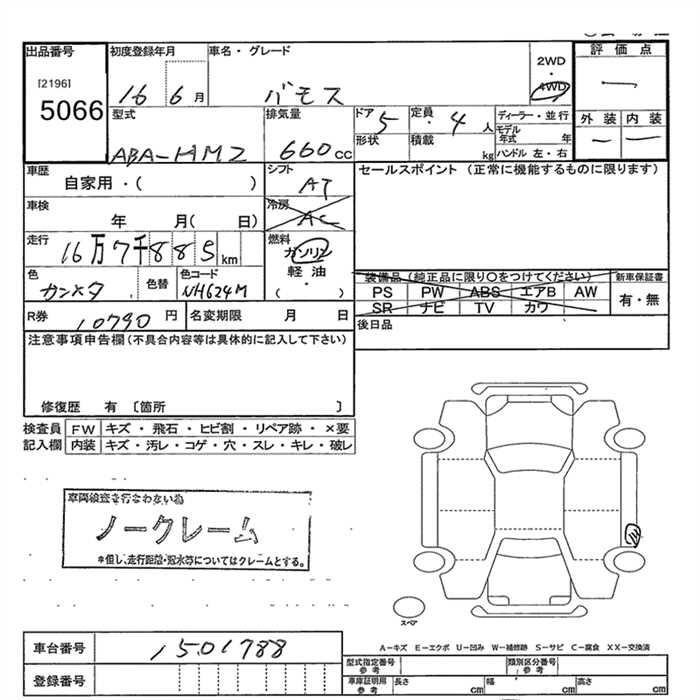 出品番号 初度登録年月 車名・グレード 2WD ・ 4WD 評価点
[2196]
5066
16 6月 バモス 一
型式 排気量 ドア 5 定員・4人 ディーラー・並行 外装 内装
ABA-HM2 660cc 形状 積載 kg モデル年式 年 ハンドル 左・右 一 一
車歴 シフト セールスポイント (正常に機能するものに限ります)
自家用・( ) AT
車検 冷房
年 月( 日) AC
走行 燃料
16万7千885km ガソリン
軽油
・
( )
色 色替 色コード 装備品(純正品に限り○をつけてください) 新車保証書
NH624M PS PW ABS エアB AW 有・無
SR ナビ TV カワ
R券 10790円 名変期限 月 日 後日品
注意事項申告欄(不具合内容等は具体的に記入して下さい)
修復歴 有 〔箇所 〕
検査員 FW キズ・飛石・ヒビ割・リペア跡・×要
記入欄 内装 キズ・汚レ・コゲ・穴・スレ・キレ・破レ
車両検査を行なわない為
ノークレーム
*但し、走行距離・冠水等についてはクレームとする。
スペア
A-キズ E-エクボ U-凹み W-補修跡 S-サビ C-腐食 XX-交換済
車台番号 1501788
型式指定番号 参考 類別区分番号 参考
登録番号 車庫証明用 参考 長さ cm 幅 cm 高さ cm